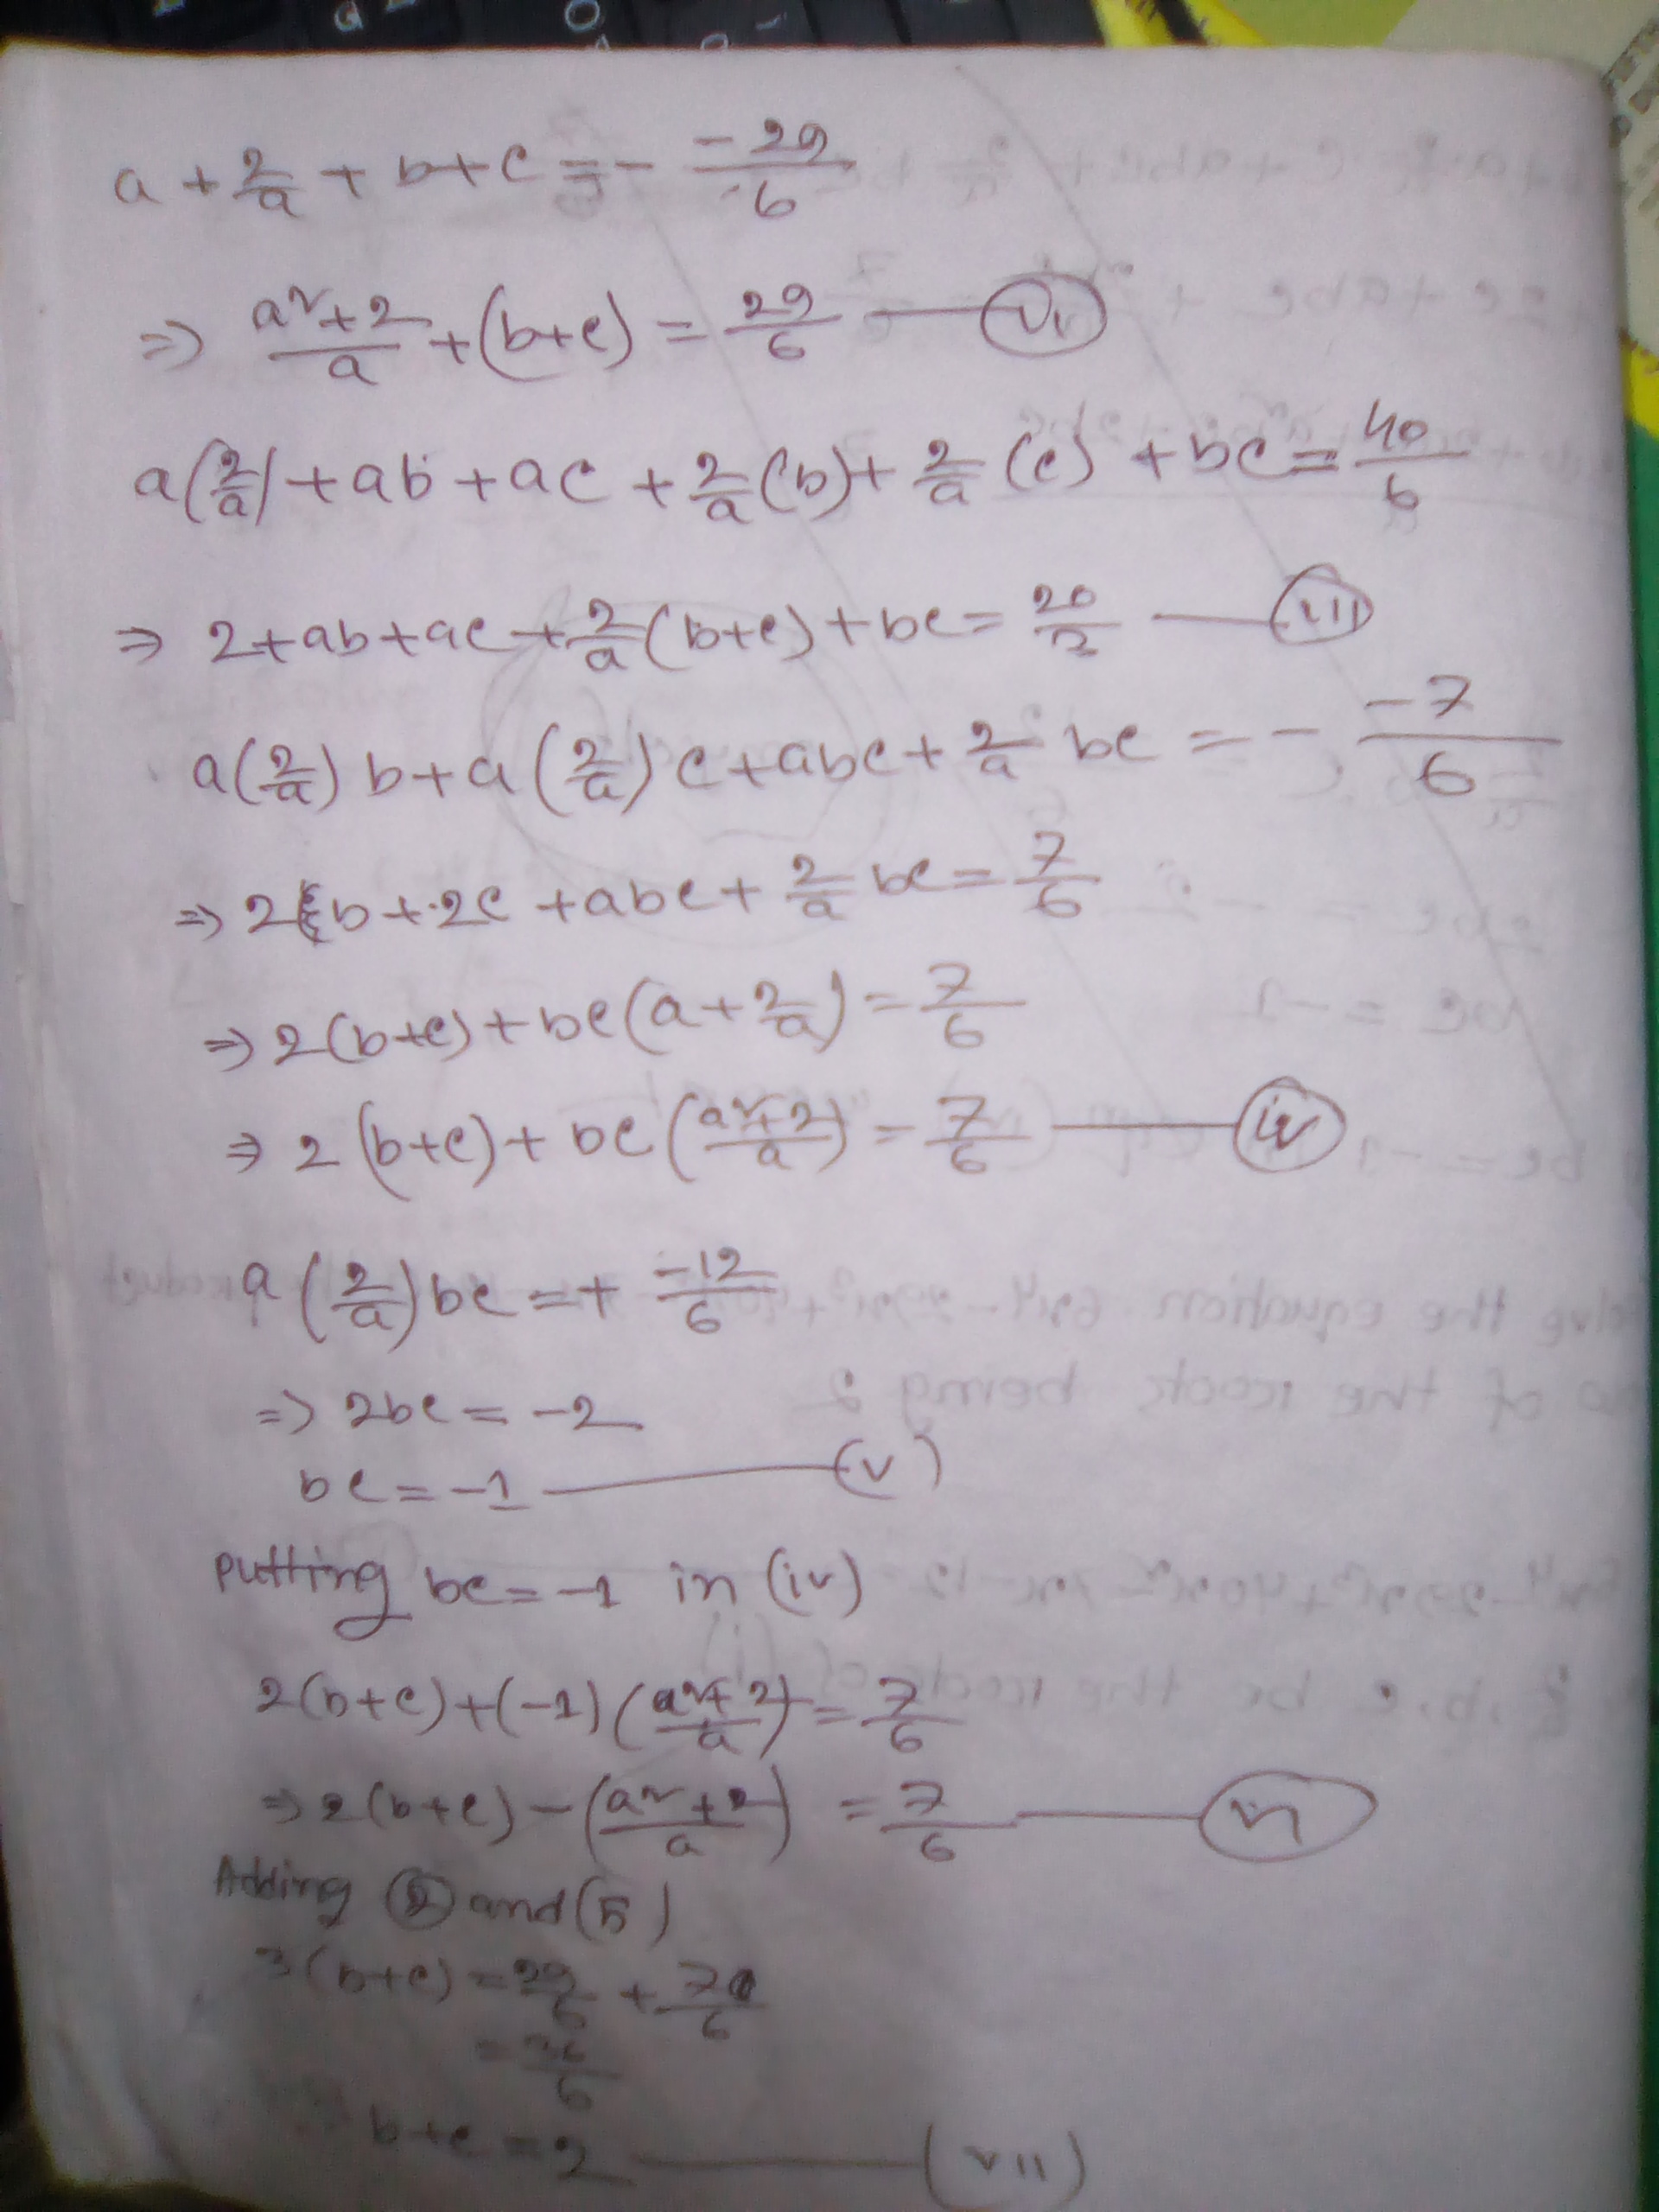 a + 2/a + b + c = - -29/6
⇒ a²+2/a + (b+c) = 29/6 —— (ii)
a(2/a) + ab + ac + 2/a (b) + 2/a (c) + bc = 40/6
⇒ 2 + ab + ac + 2/a (b+c) + bc = 20/3 —— (iii)
a(2/a) b + a(2/a) c + abc + 2/a bc = - -7/6
⇒ 2b + 2c + abc + 2/a bc = 7/6
⇒ 2(b+c) + bc(a + 2/a) = 7/6
⇒ 2(b+c) + bc(a²+2/a) = 7/6 —— (iv)
a(2/a)bc = + -12/6
⇒ 2bc = -2
bc = -1 —— (v)
putting bc = -1 in (iv)
2(b+c) + (-1)(a²+2/a) = 7/6
⇒ 2(b+c) - (a²+2/a) = 7/6 —— (vi)
Adding (2) and (5)
3(b+c) = 29/6 + 7/6
= 36/6
b+c = 2 —— (vii)